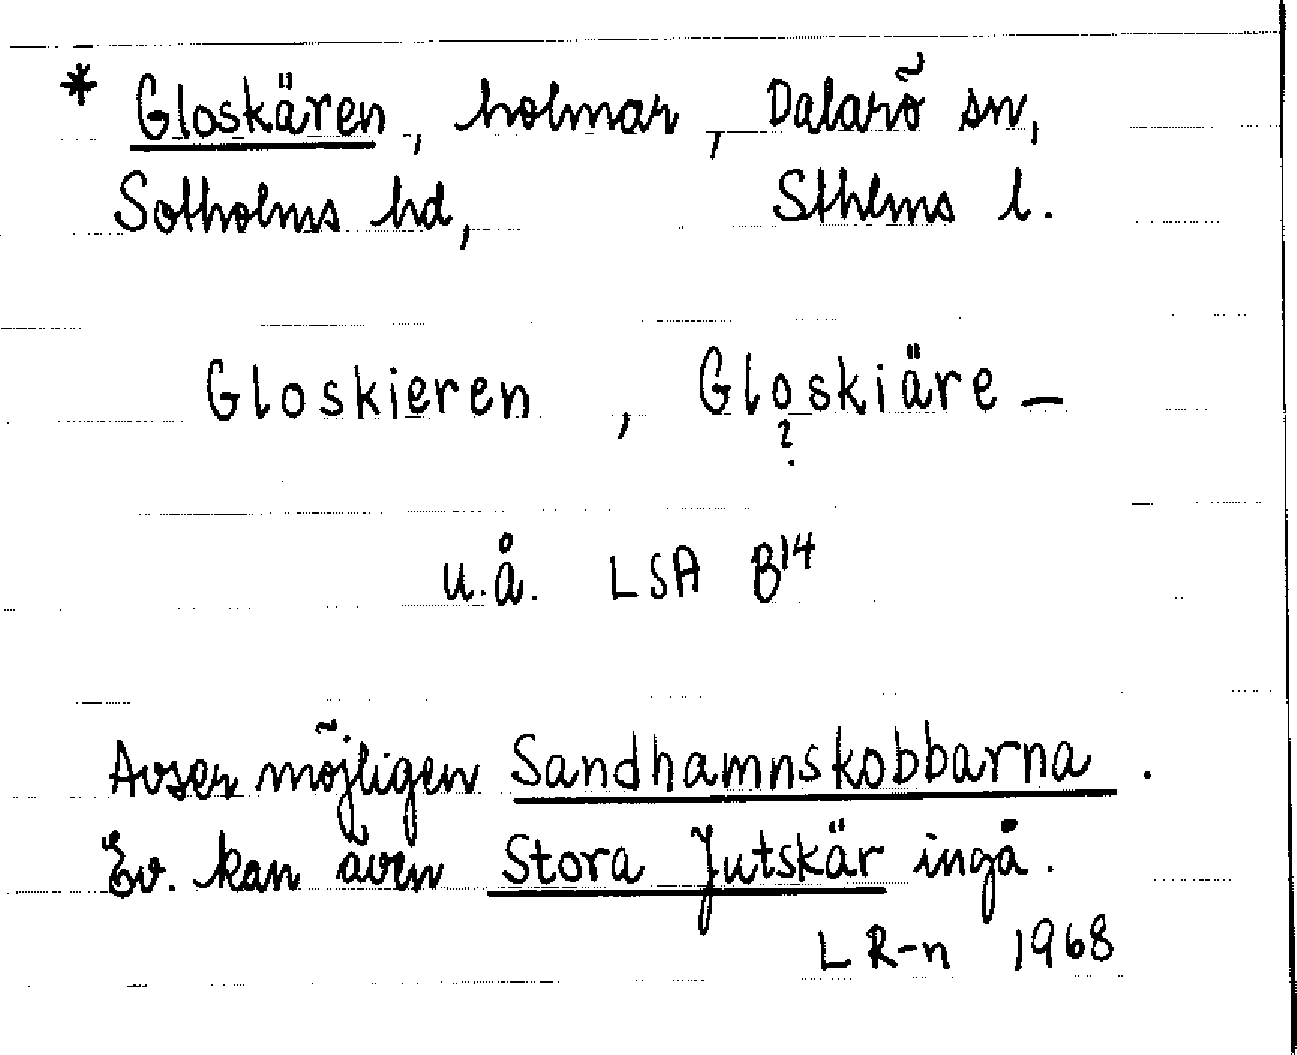 * Gloskären, holmar, Dalarö sn,
Sotholms hd, Sthlms l.
Gloskieren, Gloskiäre –
?
u.å. LSA B14
Avser möjligen Sandhamnskobbarna.
Ev. kan även Stora Jutskär ingå.
L R-n 1968